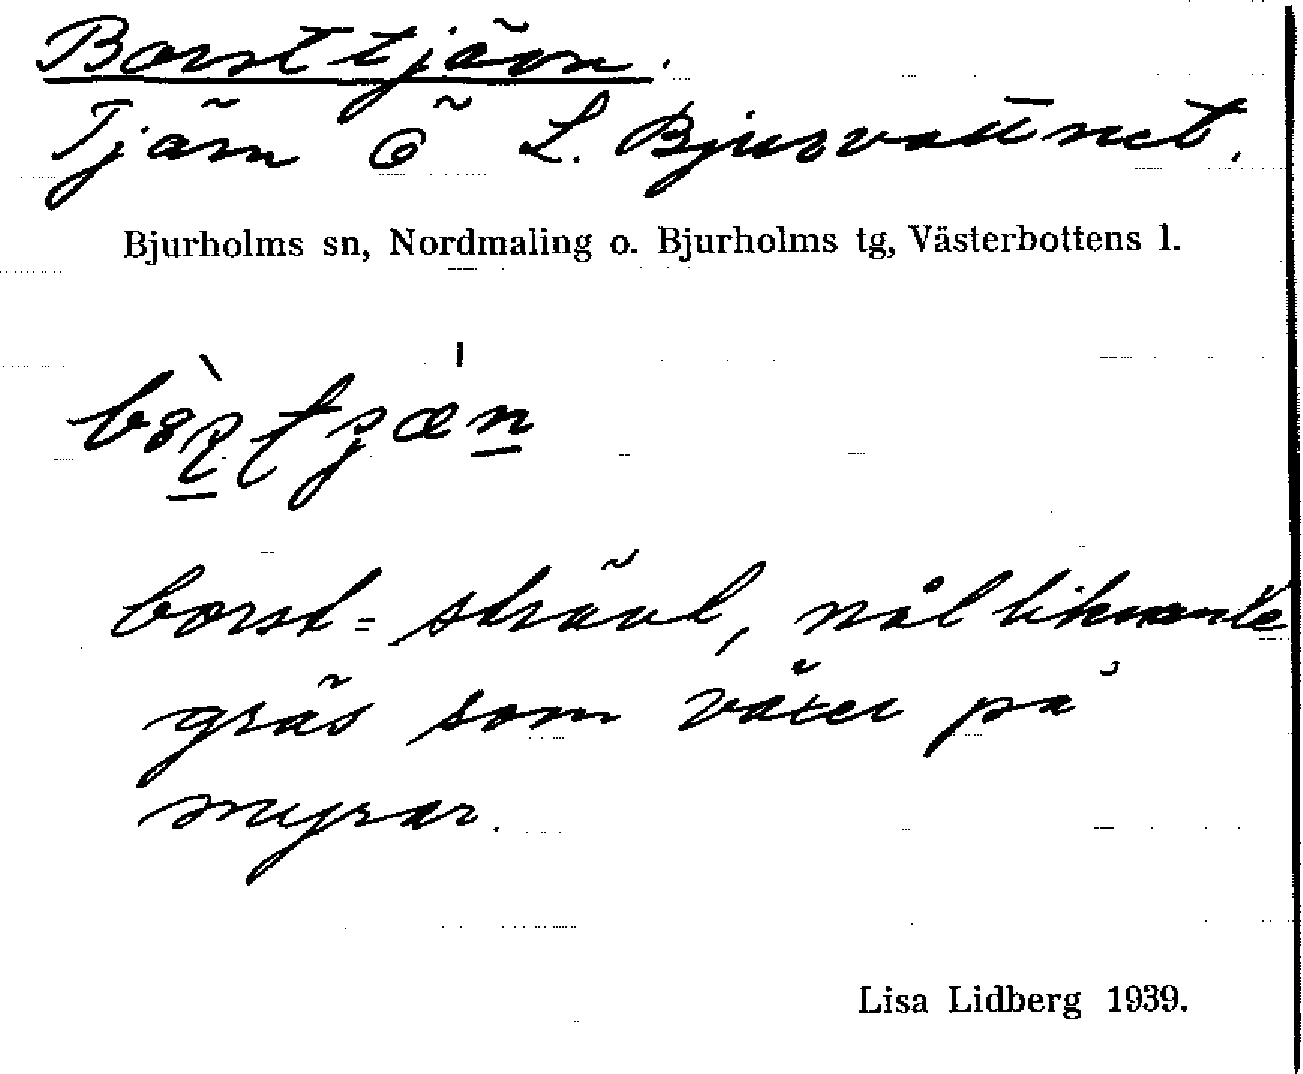 Borsttjärn.
Tjärn Ö L. Bjursvattnet.
Bjurholms sn, Nordmaling o. Bjurholms tg, Västerbottens l.
borst = strävt, nålliknande
gräs som växer på
myrar.
Lisa Lidberg 1939.